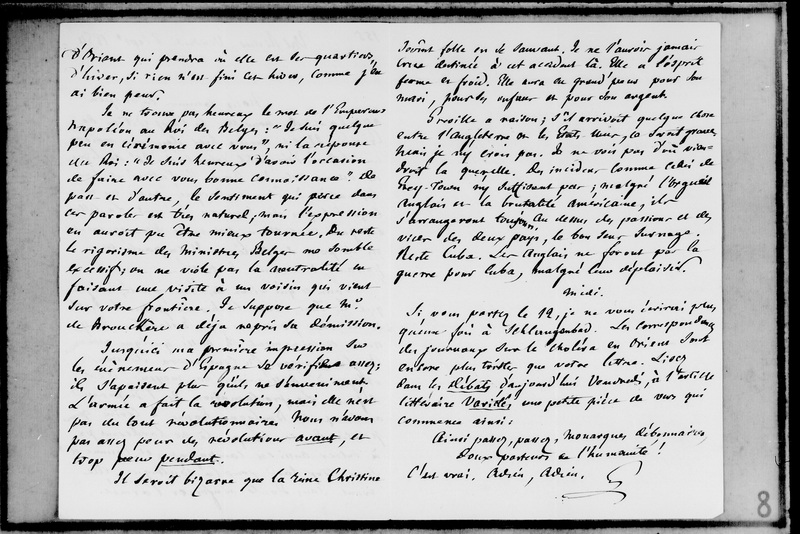 d'Orient qui prendra où elle est ses quartiers
d'hiver, si rien n'est fini cet hiver, comme j'en
ai bien peur.
Je ne trouve pas heureux le mot de l'Empereur
Napoléon au Roi des Belges : "Je suis quelque
peu en cérémonie avec vous", ni la réponse
du Roi : "Je suis heureux d'avoir l'occasion
de faire avec vous bonne connoissance". De
part et d'autre, le sentiment qui perce dans
ces paroles est très naturel, mais l'expression
en auroit pu être mieux tournée. Du reste
le rigorisme des Ministres Belges me semble
excessif ; on ne viole pas la neutralité en
faisant une visite à un voisin qui vient
sur votre frontière. Je suppose que Mr.
de Brouckère a déja repris sa démission.
Jusqu'ici ma première impression sur
les évènemens d'Espagne se vérifie assez ;
ils s'apaisent plus qu'ils ne s'enveniment.
L'armée a fait la révolution, mais elle n'est
pas du tout révolutionnaire. Nous n'avons
pas assez peur des révolutions avant, et
trop peur pendant.
Il seroit bizarre que la reine Christine
devînt folle en se sauvant. Je ne l'aurois jamais
crue destinée à cet accident là. Elle a l'esprit
ferme et froid. Elle aura eu grand' peur pour son
mari, pour ses enfans et pour son argent.
Greville a raison ; s'il arrivoit quelque chose
entre l'Angleterre et les Etats Unis, ce seroit grave,
mais je n'y crois pas. Je ne vois pas d'où vien-
droit la querelle. Des incidens comme celui de
Grey-Town n'y suffisent pas ; malgré l'orgueil
Anglais et la brutalité Américaine, ils
s'arrangeront toujours. Au dessus des passions et des
vices des deux pays, le bon sens surnage.
Reste Cuba. Les Anglais ne feront pas la
guerre pour Cuba, malgré leur déplaisir.
midi.
Si vous partez le 12, je ne vous écrirai plus
qu'une fois à Schlangenbad. Les correspondances
des journaux sur le choléra en Orient sont
encore plus tristes que votre lettre. Lisez
dans les Débats d'aujourd'hui Vendredi, à l'article
littéraire Variétés, une petite pièce de vers qui
commence ainsi :
Ainsi passez, passez, monarques débonnaires,
Doux pasteurs de l'humanité !
C'est vrai. Adieu, Adieu.
8